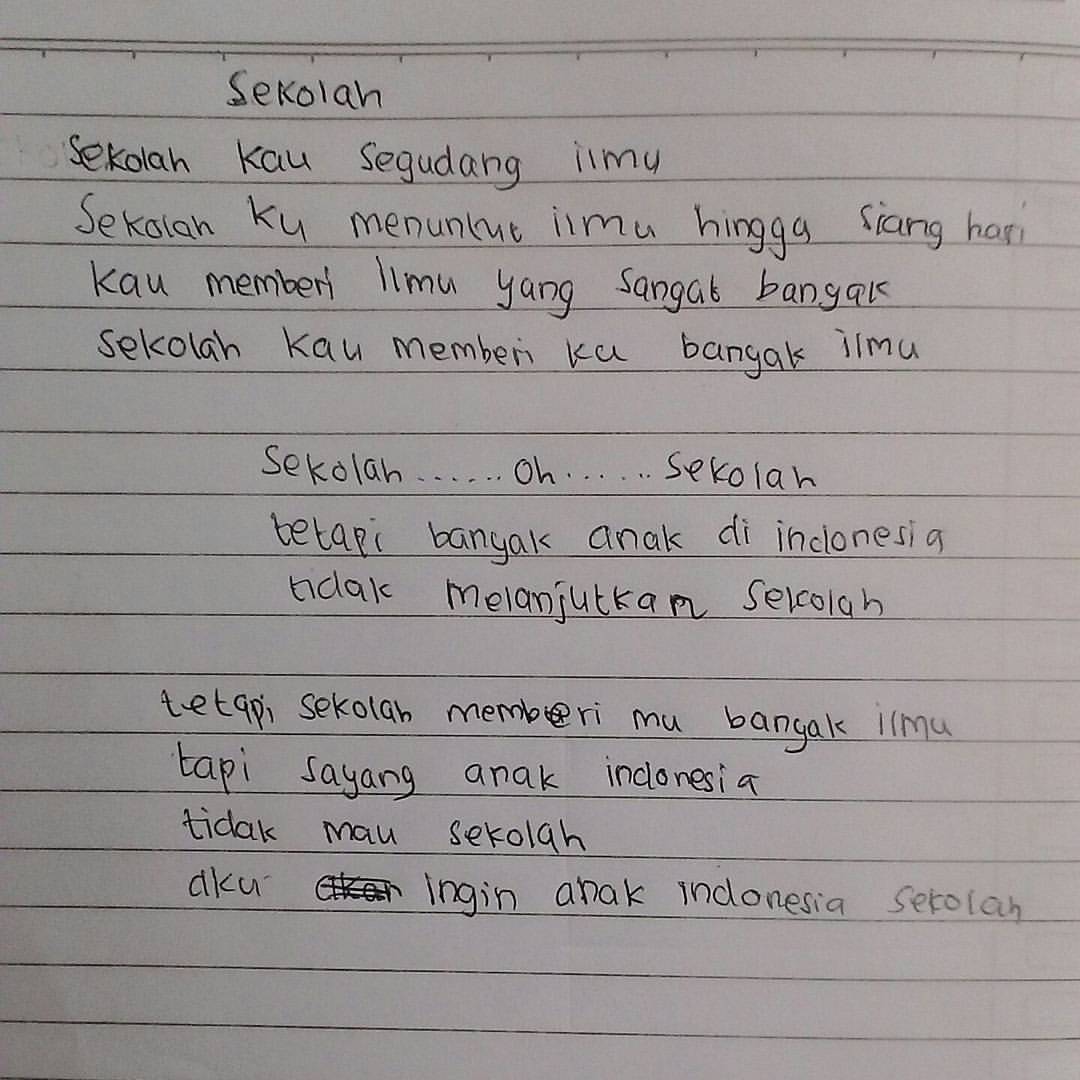 Sekolah
Sekolah kau segudang ilmu
Sekolah ku menuntut ilmu hingga siang hari
kau memberi ilmu yang sangat banyak
sekolah kau memberi ku banyak ilmu
Sekolah ...... Oh ...... sekolah
tetapi banyak anak di indonesia
tidak melanjutkan sekolah
tetapi sekolah memberi mu banyak ilmu
tapi sayang anak indonesia
tidak mau sekolah
aku ingin anak indonesia sekolah